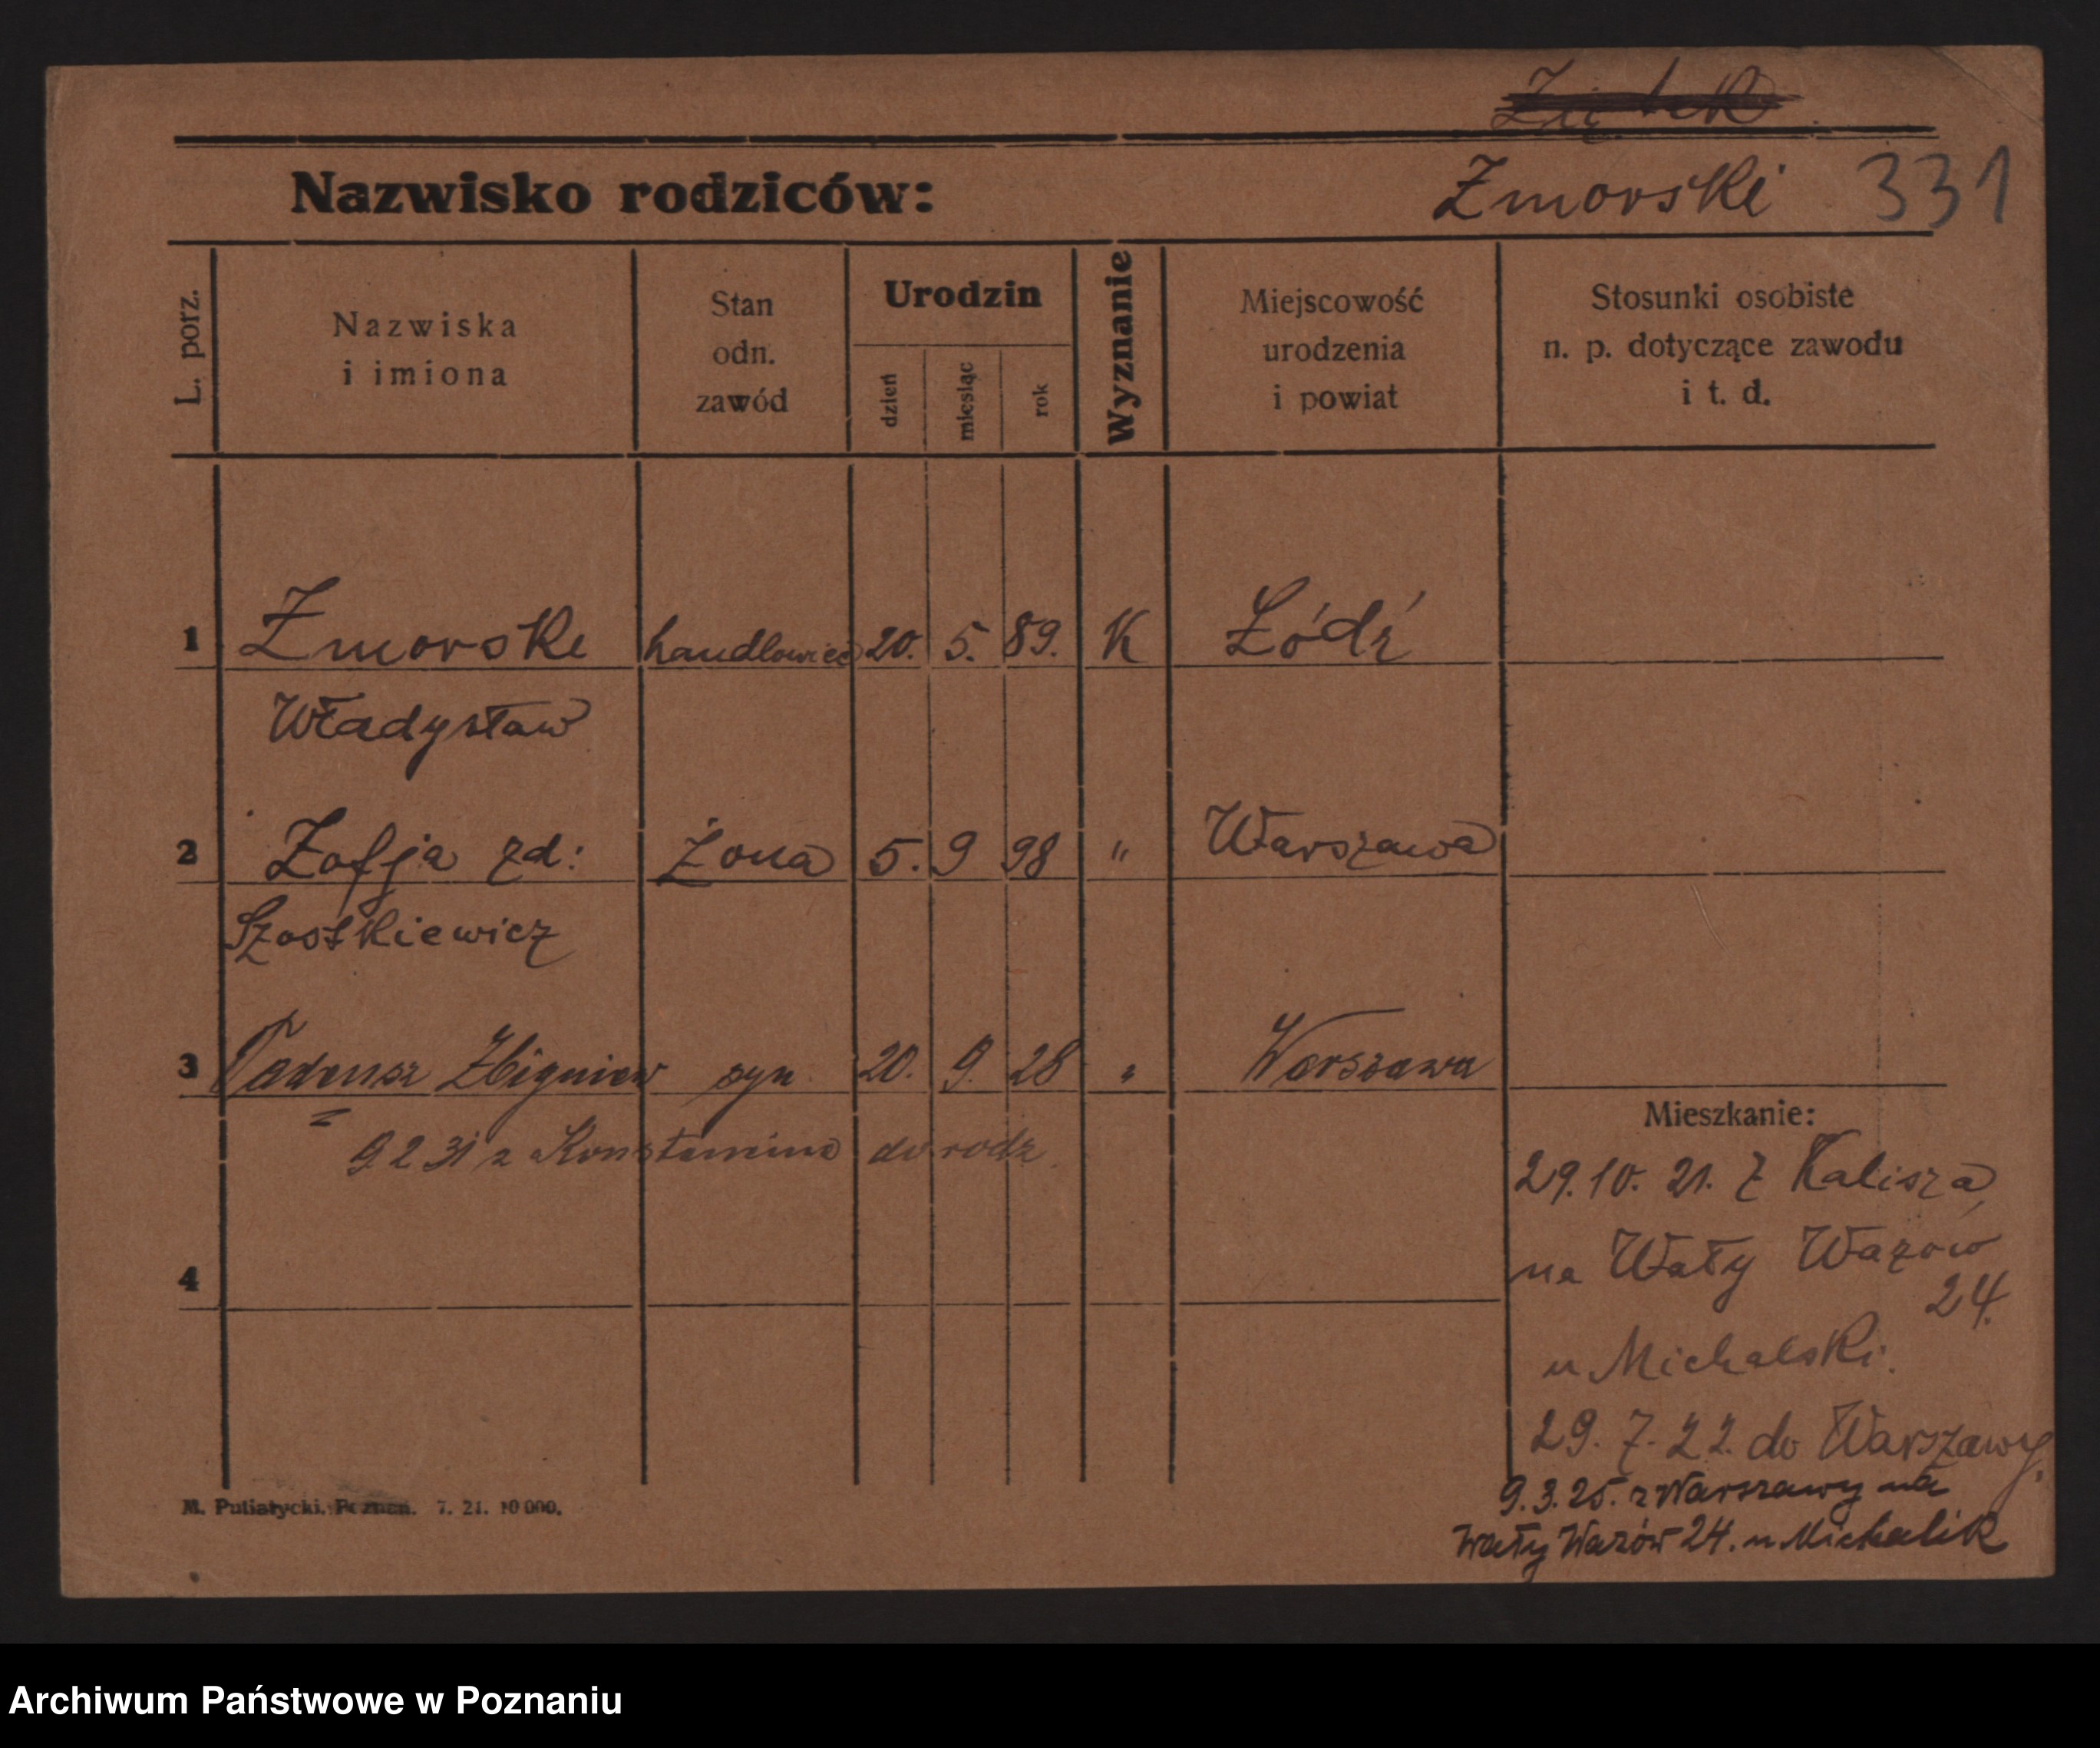 Zmorski 331
Nazwisko rodziców:
L. porz.
Nazwiska
i imiona
Stan
odn.
zawód
Urodzin
dzień
miesiąc
rok
Wyznanie
Miejscowość
urodzenia
i powiat
Stosunki osobiste
n. p. dotyczące zawodu
i t. d.
1 Zmorski handlowiec 20. 5. 89. K Łódź
Władysław
2 Zofja zd: żona 5. 9 98 " Warszawa
Szostkiewicz
3 Tadeusz Zbigniew syn 20. 9. 28 " Warszawa
9 2 31 z do rodz
4
Mieszkanie:
29. 10. 21. z Kalisza
na Wały Wazów
24.
u Michalski.
29. 7. 22. do Warszawy.
9. 3. 25. z Warszawy na
Wały Wazów 24. u Michalik
M. Putiatycki. Poznań. 7. 21. 10 000.
Archiwum Państwowe w Poznaniu